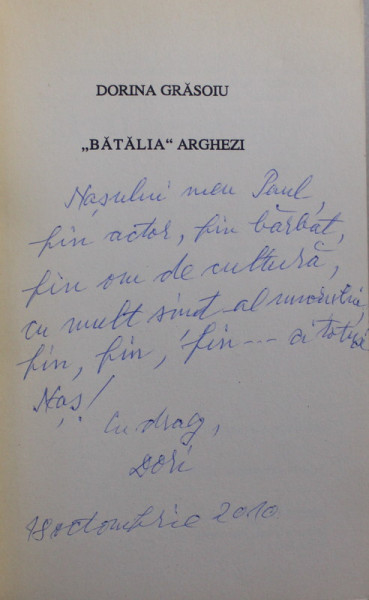 DORINA GRĂSOIU
„BĂTĂLIA“ ARGHEZI
Nașului meu Paul,
fin actor, fin bărbat,
fin om de cultură,
cu mult simț al umorului,
fin, fin, fin --- și totuși
Naș!
Cu drag,
Dori
18 octombrie 2010